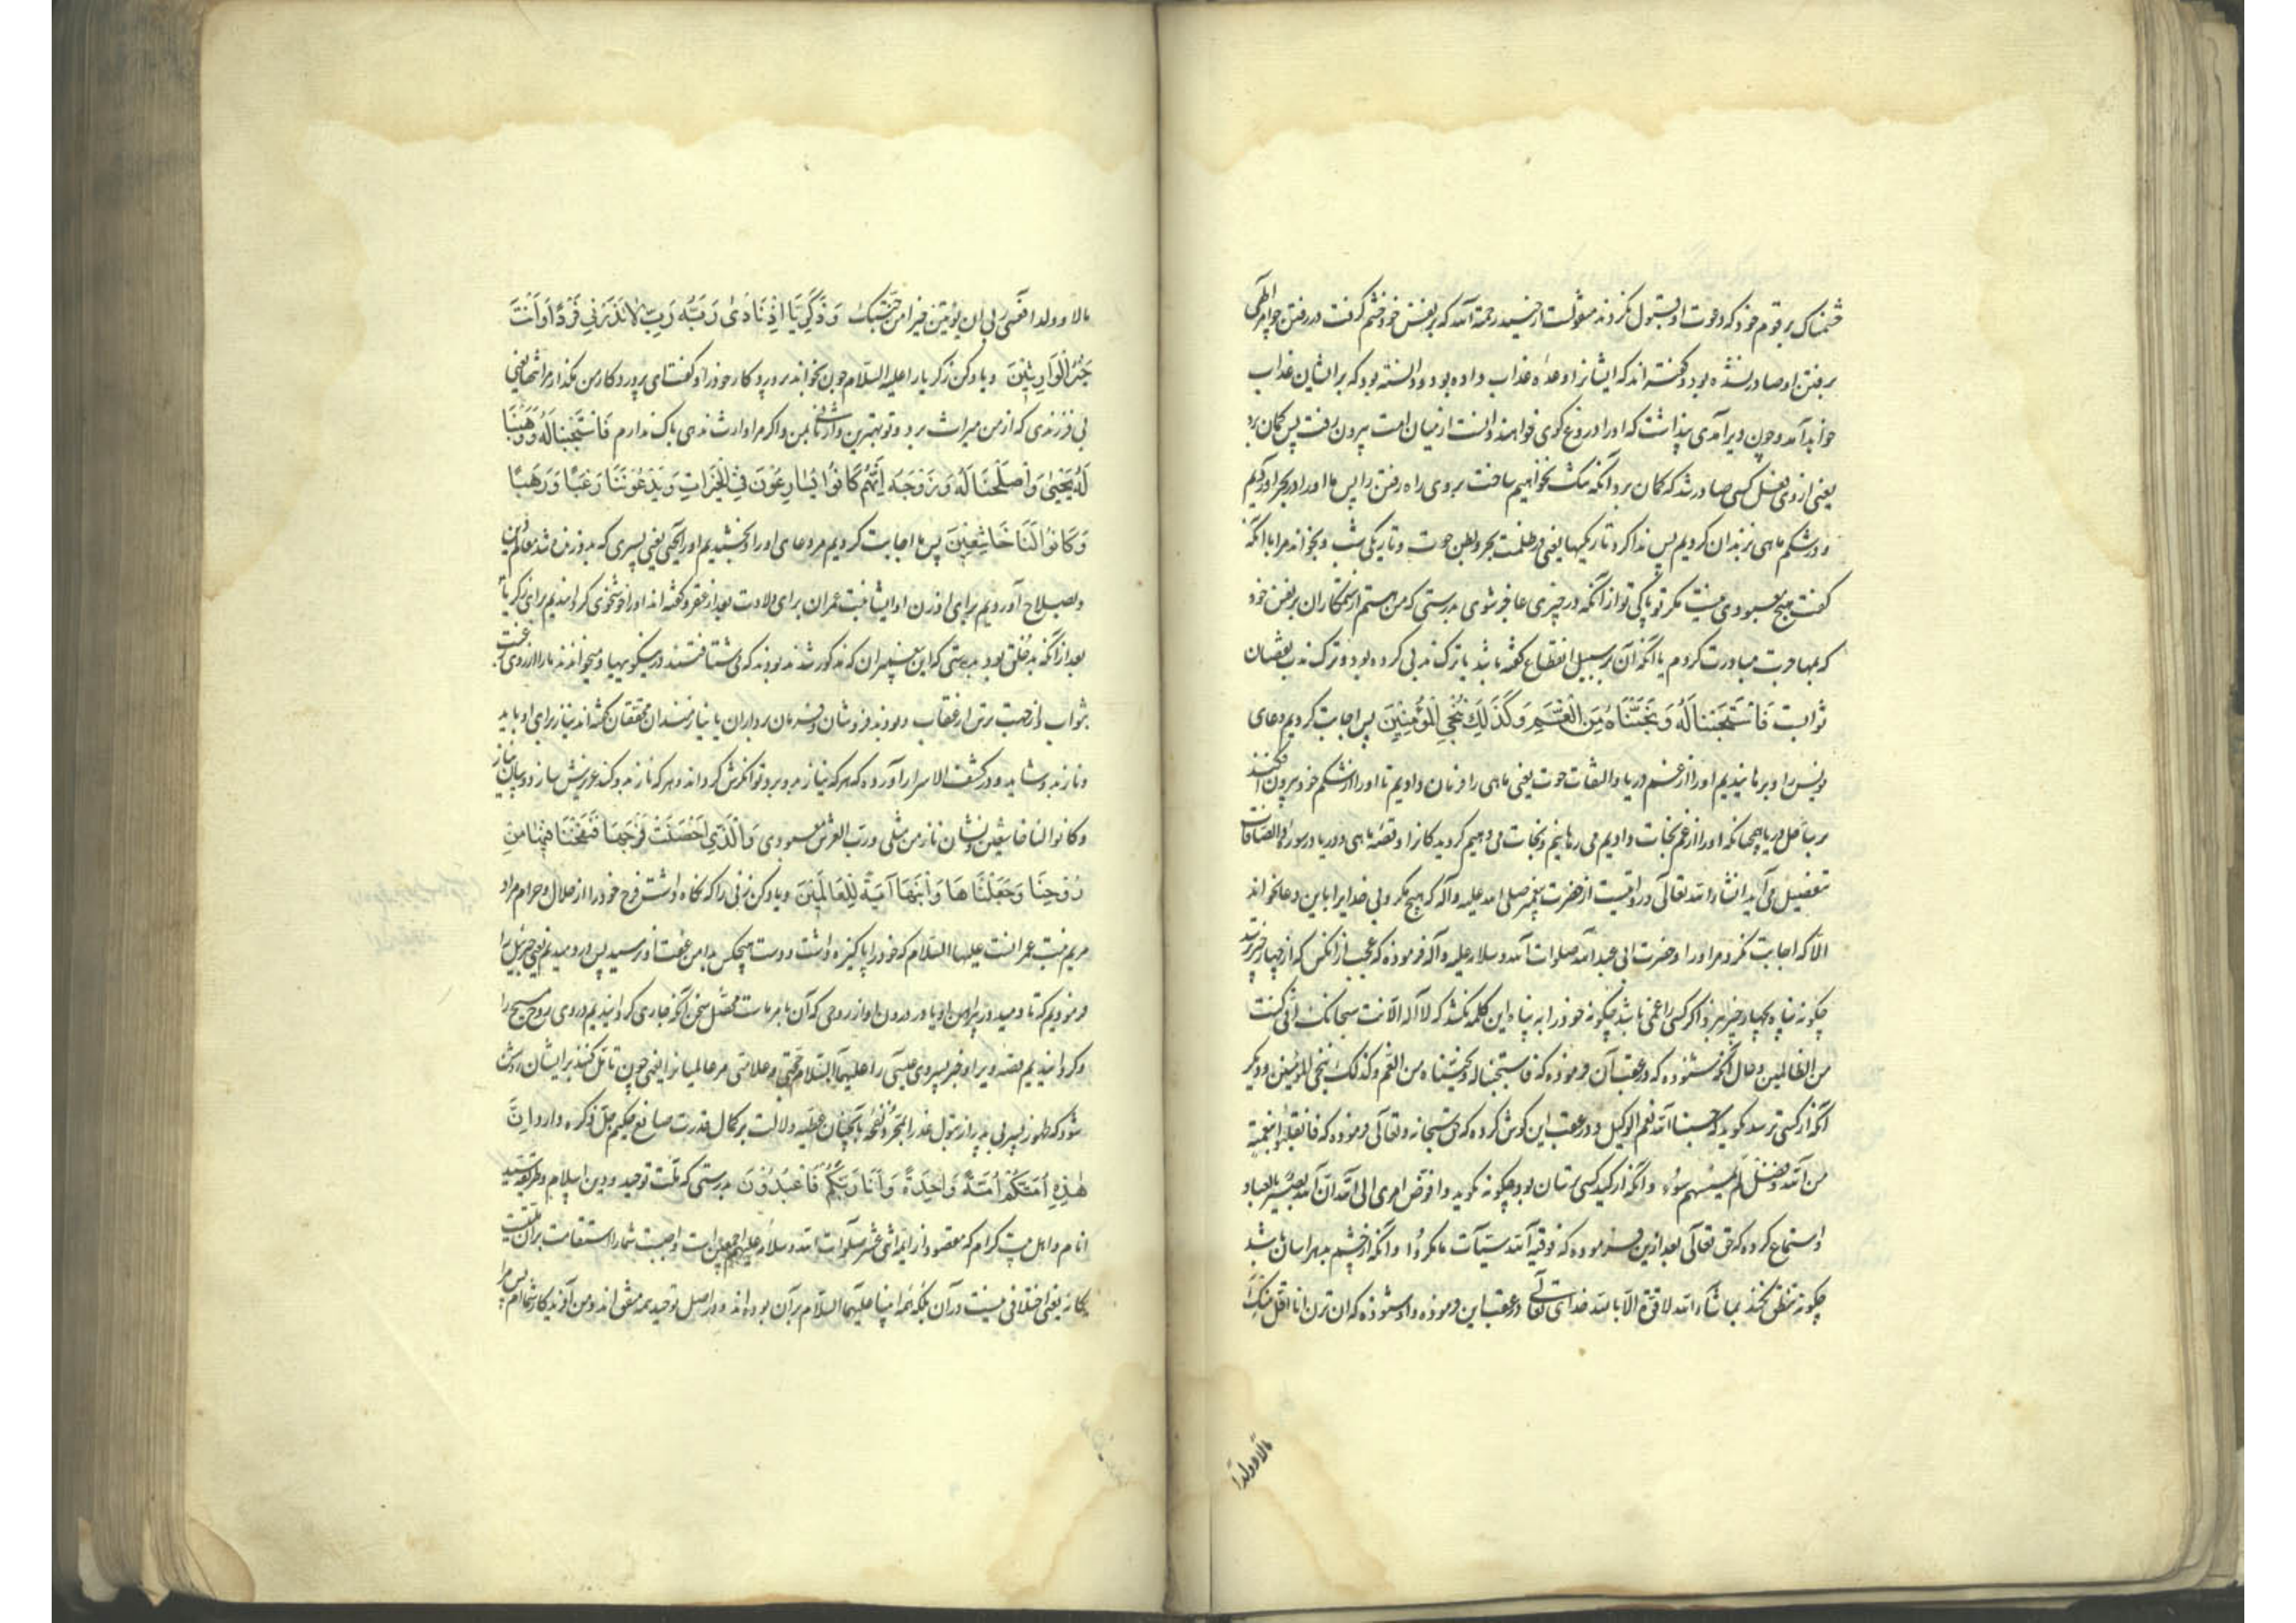 خشمناک بر قوم خود که دعوت او قبول نکردند منقولست از حمید رحمة الله که بر نفس خود خشم گرفت در رفتن چو امر الهی
برفتن او صادر نشده بود و گفته‌اند که ایشانرا وعده عذاب داده بود و دانسته بود که بر ایشان عذاب
خواهد آمد و چون دیر آمدی پنداشت که او را دروغ گوی خواهند دانست از میان امت بیرون رفت پس گمان برد
یعنی از وی فعل کسی صادر شد که گمان برد آنکه تنک نخواهیم ساخت بروی راه رفتن را پس ما او را در بحر آوردیم
و در شکم ماهی بزندان کردیم پس ندا کرد تاریکیها یعنی در ظلمت بحر و بطن حوت و تاریکی شب و بخواند مرا با آنکه
گفت هیچ معبودی نیست مگر تو پاکی تو از آنکه در چیزی عاجز شوی بدرستی که من هستم از ستمکاران بر نفس خود
که بمهاجرت مبادرت کردم یا آنکه آن بر سبیل انقطاع گفته باشد یا ترک ندبی کرده بود و ترک ندب نقصان
ثوابست فَاسْتَجَبْنَا لَهُ وَنَجَّيْنَاهُ مِنَ الْغَمِّ وَكَذَلِكَ نُنْجِي الْمُؤْمِنِينَ پس اجابت کردیم دعای
یونس را و برهانیدیم او را از غم دریا و التقات حوت یعنی ماهی را فرمان دادیم تا او را از شکم خود بیرون افکند
بر ساحل دریا همچنانکه او را از غم نجات دادیم می رهانیم و نجات می دهیم گرویدکانرا و قصه ماهی و دریا در سوره والصافات
بتفصیل می آید انشاء الله تعالی و روایتست از حضرت پیغمبر صلی الله علیه و آله که هیچ مکروبی خدایرا باین دعا نخواند
الا که اجابت نکرد مر او را و حضرت ابی عبد الله صلوات الله و سلامه علیه و آله فرموده که عجب از انکس که از چهار چیز ترسد
چگونه پناه بچهار چیز نبرد اگر کسی را غمی باشد چگونه خود را به پناه این کلمه نکشد که لا اله الا انت سبحانک انی کنت
من الظالمین و حال آنکه شنوده که در عقب آن فرموده که فاستجبنا له و نجیناه من الغم و کذلک ننجی المؤمنین و دیگر
آنکه از کسی ترسد نکوید که حسبنا الله و نعم الوکیل و در عقب این گوش کرده که حق سبحانه و تعالی فرموده که فانقلبوا بنعمة
من الله و فضل لم یمسسهم سوء و آنکه از کید کسی ترسان بود چگونه نگوید و افوض امری الی الله ان الله بصیر بالعباد
و استماع کرده که حق تعالی بعد از این فرموده که فوقیه الله سیئات ما مکروا و آنکه از چشم بد هراسان باشد
چگونه تنطق نکند بما شاء الله لا قوة الا بالله خدای تعالی در عقب این فرموده و او شنوده که ان ترن انا اقل منک
مالا و ولدا
مالا و ولدا فعسی ربی ان یؤتین خیرا من جنتک وَزَكَرِيَّا إِذْ نَادَى رَبَّهُ رَبِّ لَا تَذَرْنِي فَرْدًا وَأَنْتَ
خَيْرُ الْوَارِثِينَ و یاد کن زکریا را علیه السلام چون بخواند پروردگار خود را و گفت ای پروردگار من مگذار مرا تنها یعنی
بی فرزندی که از من میراث برد و تو بهترین وارثانی بمن و اگر مرا وارث ندهی باک ندارم فَاسْتَجَبْنَا لَهُ وَوَهَبْنَا
لَهُ يَحْيَى وَأَصْلَحْنَا لَهُ وَزَوْجَهُ إِنَّهُمْ كَانُوا يُسَارِعُونَ فِي الْخَيْرَاتِ وَيَدْعُونَنَا رَغَبًا وَرَهَبًا
وَكَانُوا لَنَا خَاشِعِينَ پس ما اجابت کردیم مر دعای او را و بخشیدیم او را یحیی یعنی پسری که بدو زنده شد معالم دین
و بصلاح آوردیم برای او زن او ایشا بنت عمران برای ولادت بعد از عقر و گفته‌اند او را خوشخوی گردانیدیم برای زکریا
بعد از آنکه بدخلق بود بدرستی که این پیغمبران که مذکور شدند بودند که می شتافتند در نیکوییها و میخواندند ما را از روی رغبت
بثواب و از جهت ترس از عقاب و بودند فروشان و فرمان برداران یا نیازمندان محققان گفته‌اند نیاز برای او باید
و ناز بدو شاید و در کشف الاسرار آورده که هر که نیاز بدو برد توانگرش گرداند و هر که ناز بدو کند عزیزش سازد و بیان نیاز
و کانوا لنا خاشعین و نشان ناز من مثلی و رب العرش معبودی وَالَّتِي أَحْصَنَتْ فَرْجَهَا فَنَفَخْنَا فِيهَا مِنْ
رُوحِنَا وَجَعَلْنَاهَا وَابْنَهَا آيَةً لِلْعَالَمِينَ و یاد کن زنی را که نگاه داشت فرج خود را از حلال و حرام مراد
مریم بنت عمرانست علیهما السلام که خود را پاکیزه داشت و دست هیچکس بدامن عفت او نرسید پس در دمیدیم یعنی جبرئیل را
فرمودیم که تا دمید در پیراهن او یا در درون او از روحی که آن بامر ماست محصل سخن آنکه جاری گردانیدیم در وی روح مسیح را
و گردانیدیم قصه ویرا و خبر پسر وی عیسی را علیهما السلام حجتی و علامتی مر عالمیانرا یعنی چون تامل کنند بر ایشان روشن
شود که ظهور پسر بی پدر از بتول عذرا بمجرد نفخه باچنان عطیه دلالت بر کمال قدرت صانع حکیم جل ذکره دارد إِنَّ
هَذِهِ أُمَّتُكُمْ أُمَّةً وَاحِدَةً وَأَنَا رَبُّكُمْ فَاعْبُدُونِ بدرستی که ملت توحید و دین اسلام و طریقه سید
انام و اهل بیت کرام که مقصود از ایمه اثنی عشر صلوات الله و سلامه علیهم اجمعین است واجبست شما را استقامت بر آن ملتیست
یگانه یعنی اختلافی نیست در آن بلکه همه انبیا علیهم السلام بر آن بوده‌اند و در اصل توحید همه متفق‌اند و من آفریدگار شماام پس مرا